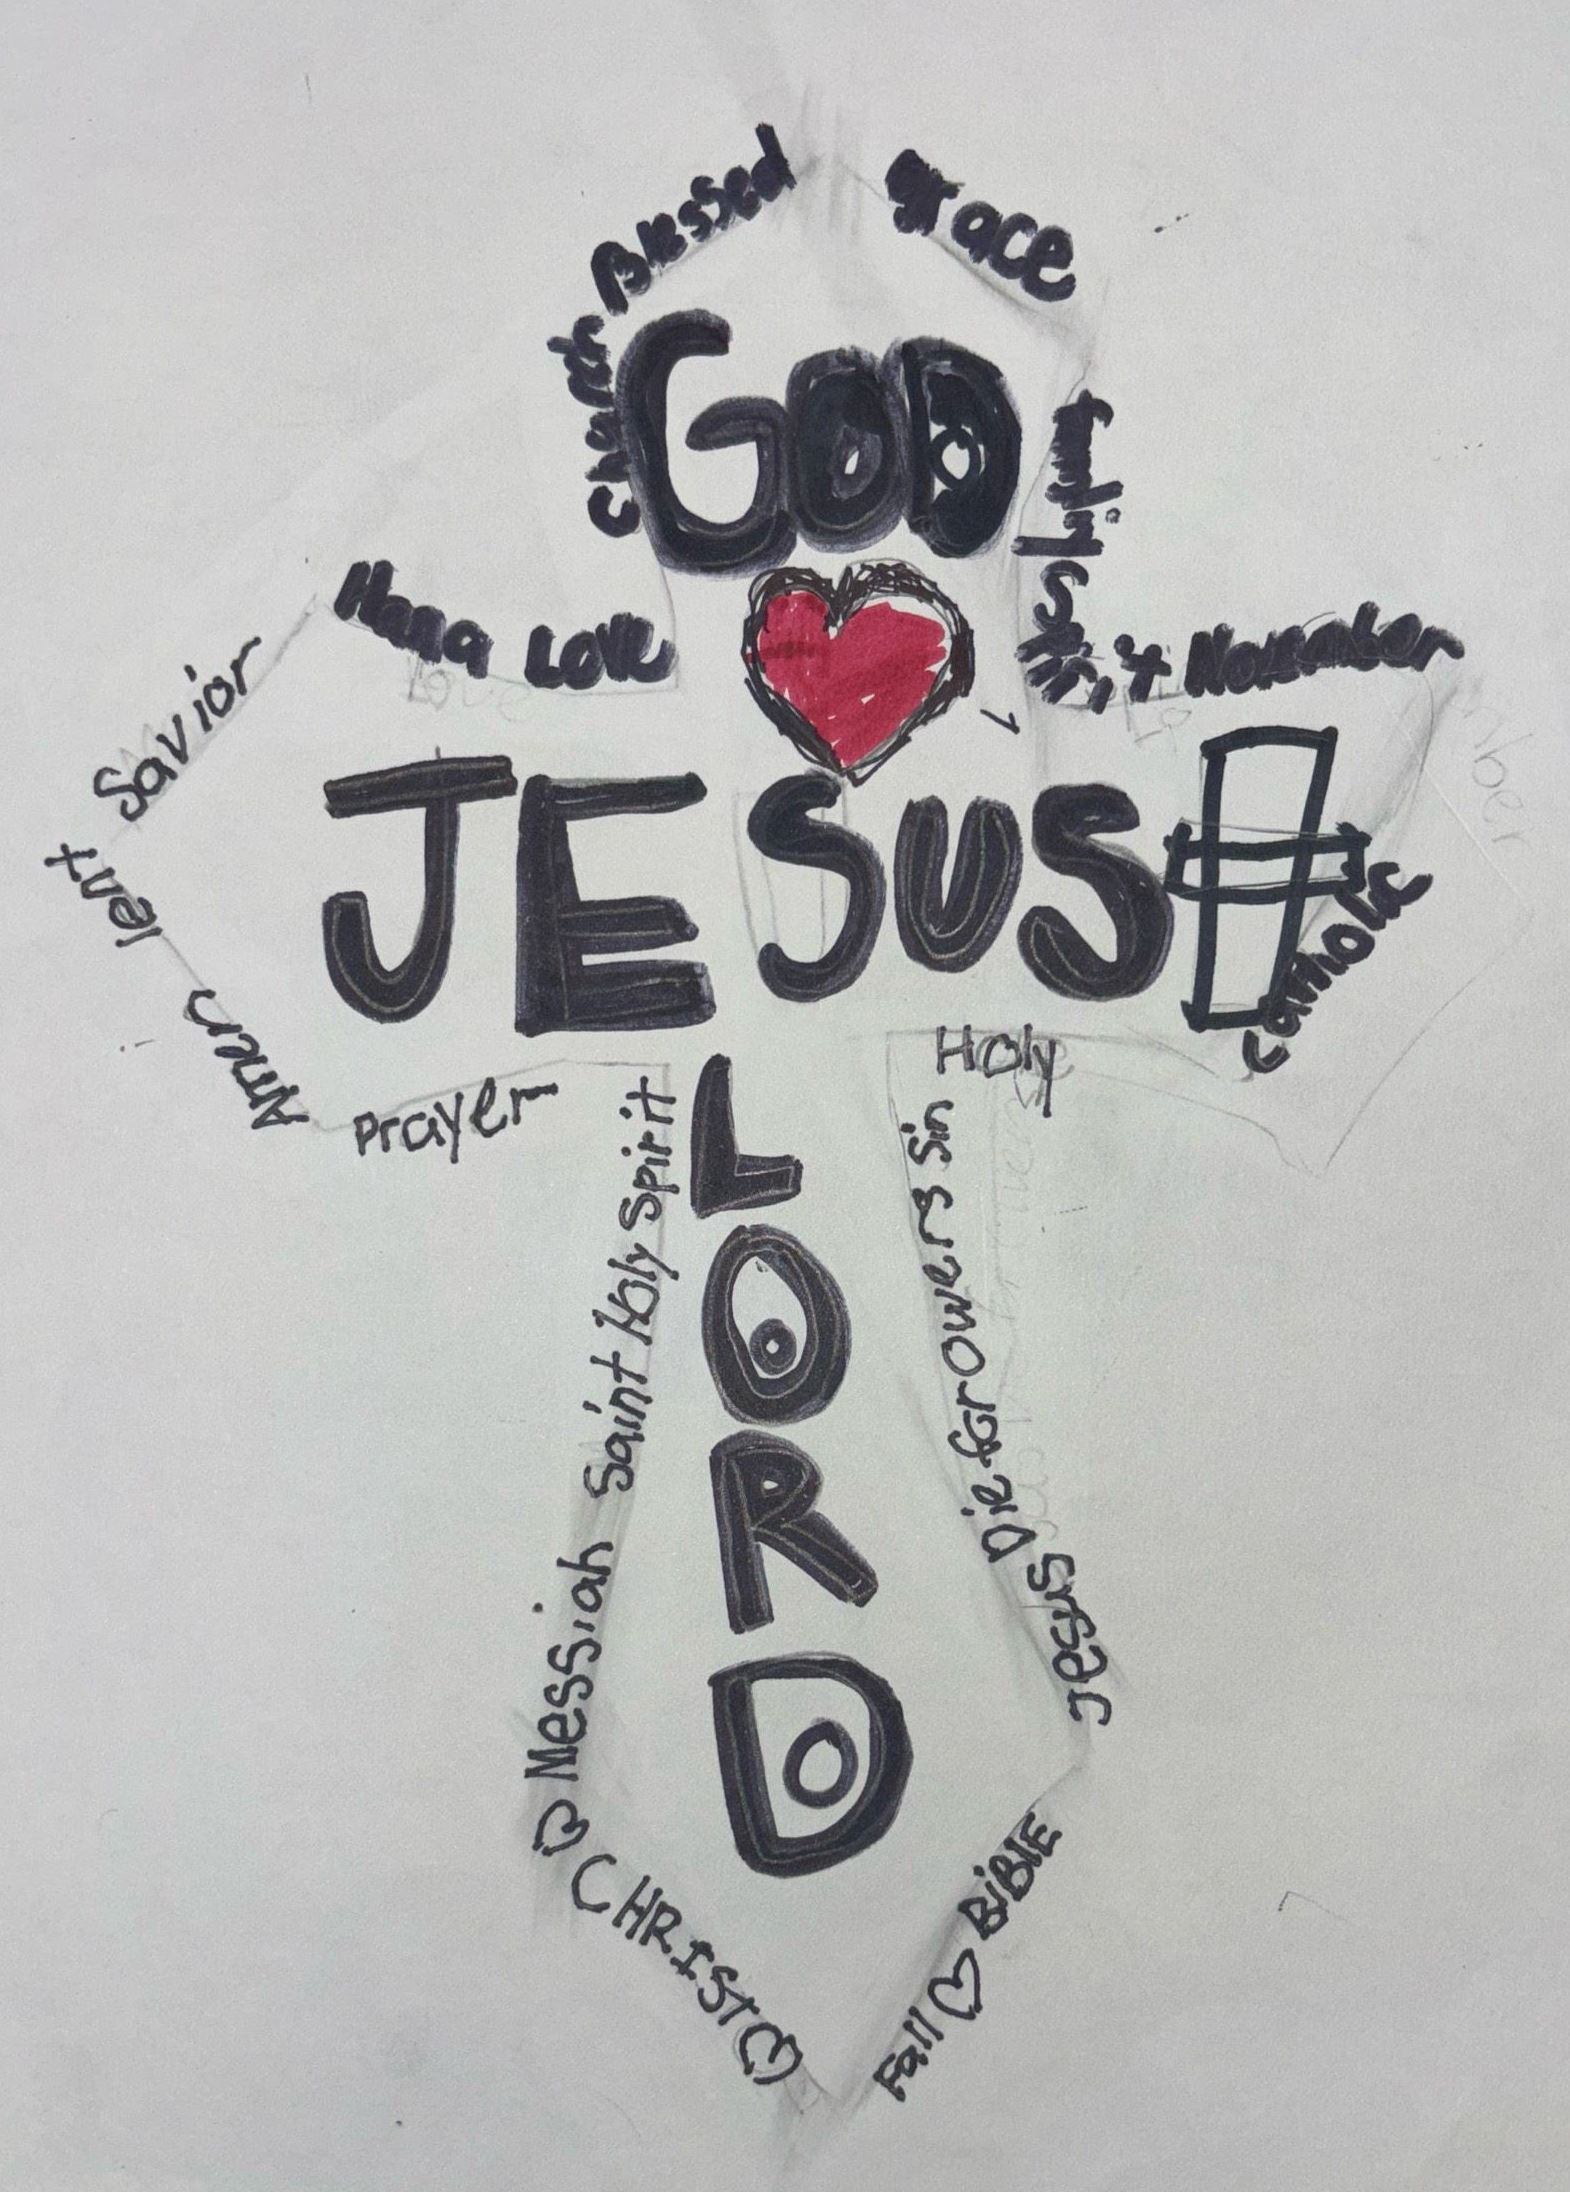 Blessed
grace
Charch
GOD
family
Hana Love
Spirit November
Savior
JESUS
lent
Catholic
Amen
Prayer
Holy
Saint Holy Spirit
LORD
Jesus Die for Owers Sin
Messiah
CHRIST
Fall BiBLE